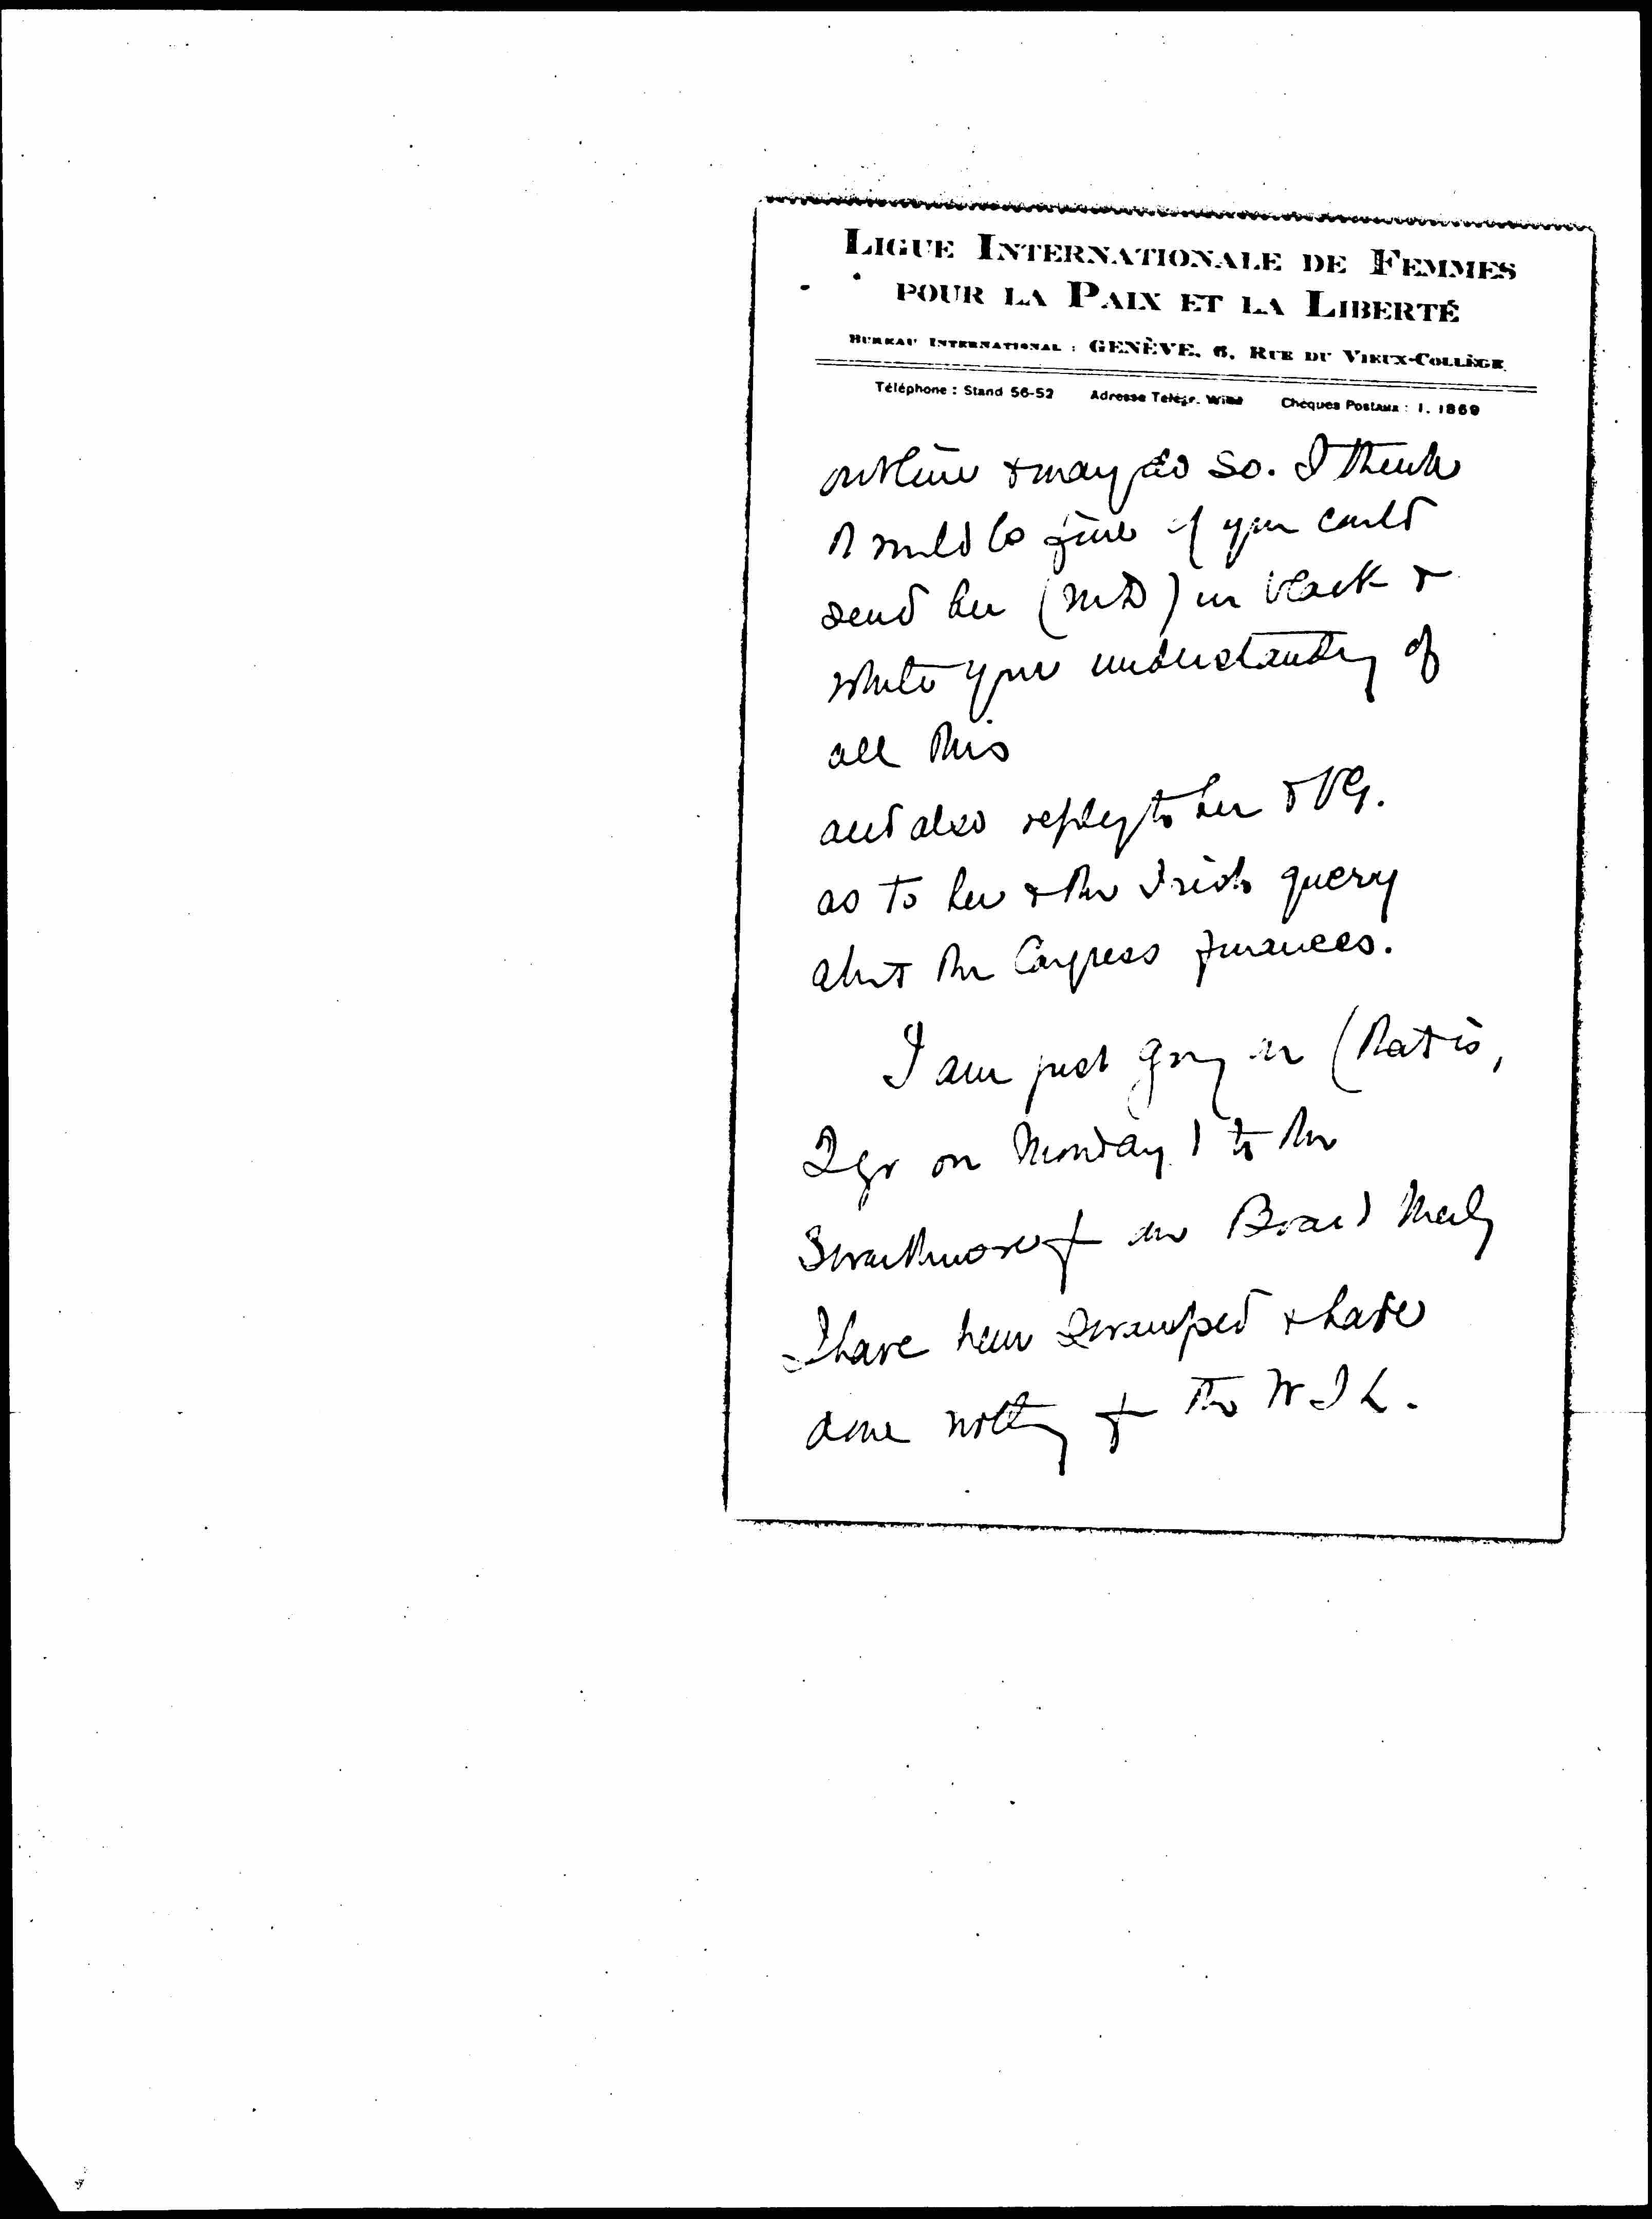 LIGUE INTERNATIONALE DE FEMMES
POUR LA PAIX ET LA LIBERTÉ
BUREAU INTERNATIONAL : GENÈVE, 6, RUE DU VIEUX-COLLÈGE
Téléphone : Stand 56-52 Adresse Télégr. Willif Chèques Postaux : I. 1869
outline & may do so. I think
it would be fine if you could
send her (MD) in black &
white your understanding of
all this
and also reply to her & VG.
as to her & the Irish query
about the Congress finances.
I am just going on (that is,
I go on Monday) to the
Swarthmore f our Board Meetg
I have been swamped & have
done nothing f the W I L.